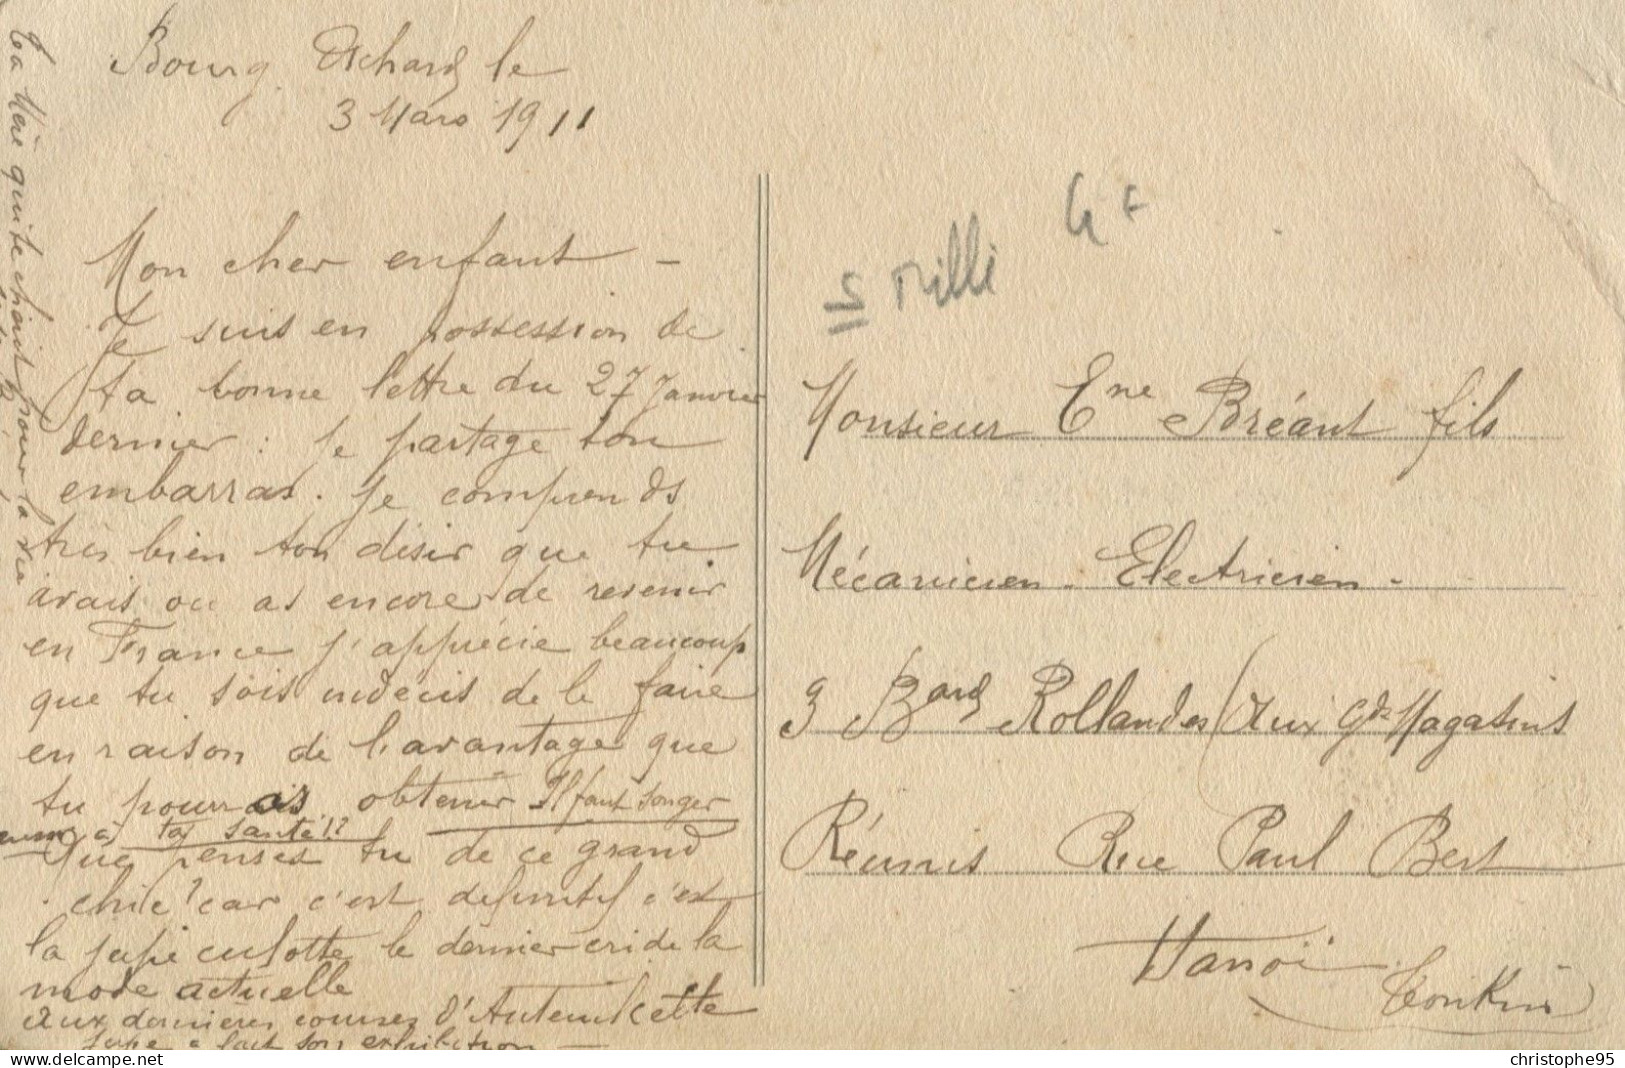 Bourg Achard le
3 Mars 1911
Mon cher enfant –
Je suis en possession de
ta bonne lettre du 27 Janvier
dernier : Je partage ton
embarras. Je comprends
très bien ton désir que tu
avais ou as encore de revenir
en France j'apprécie beaucoup
que tu sois indécis de le faire
en raison de l'avantage que
tu pourrais obtenir Il faut songer
aussi à ta santé !!
Que penses tu de ce grand
chic ? car c'est définitif c'est
la jupe culotte le dernier cri de la
mode actuelle
Aux dernières courses d'Auteuil cette
jupe a fait son exhibition –
Ta Mère qui te chérit pour la vie
5 Milli
4 F
Monsieur Ene Bréant fils
Mécanicien - Electricien -
9 Bard Rollandes (Aux Gds Magasins
Réunis Rue Paul Bert
Hanoï
Tonkin)
christophe95